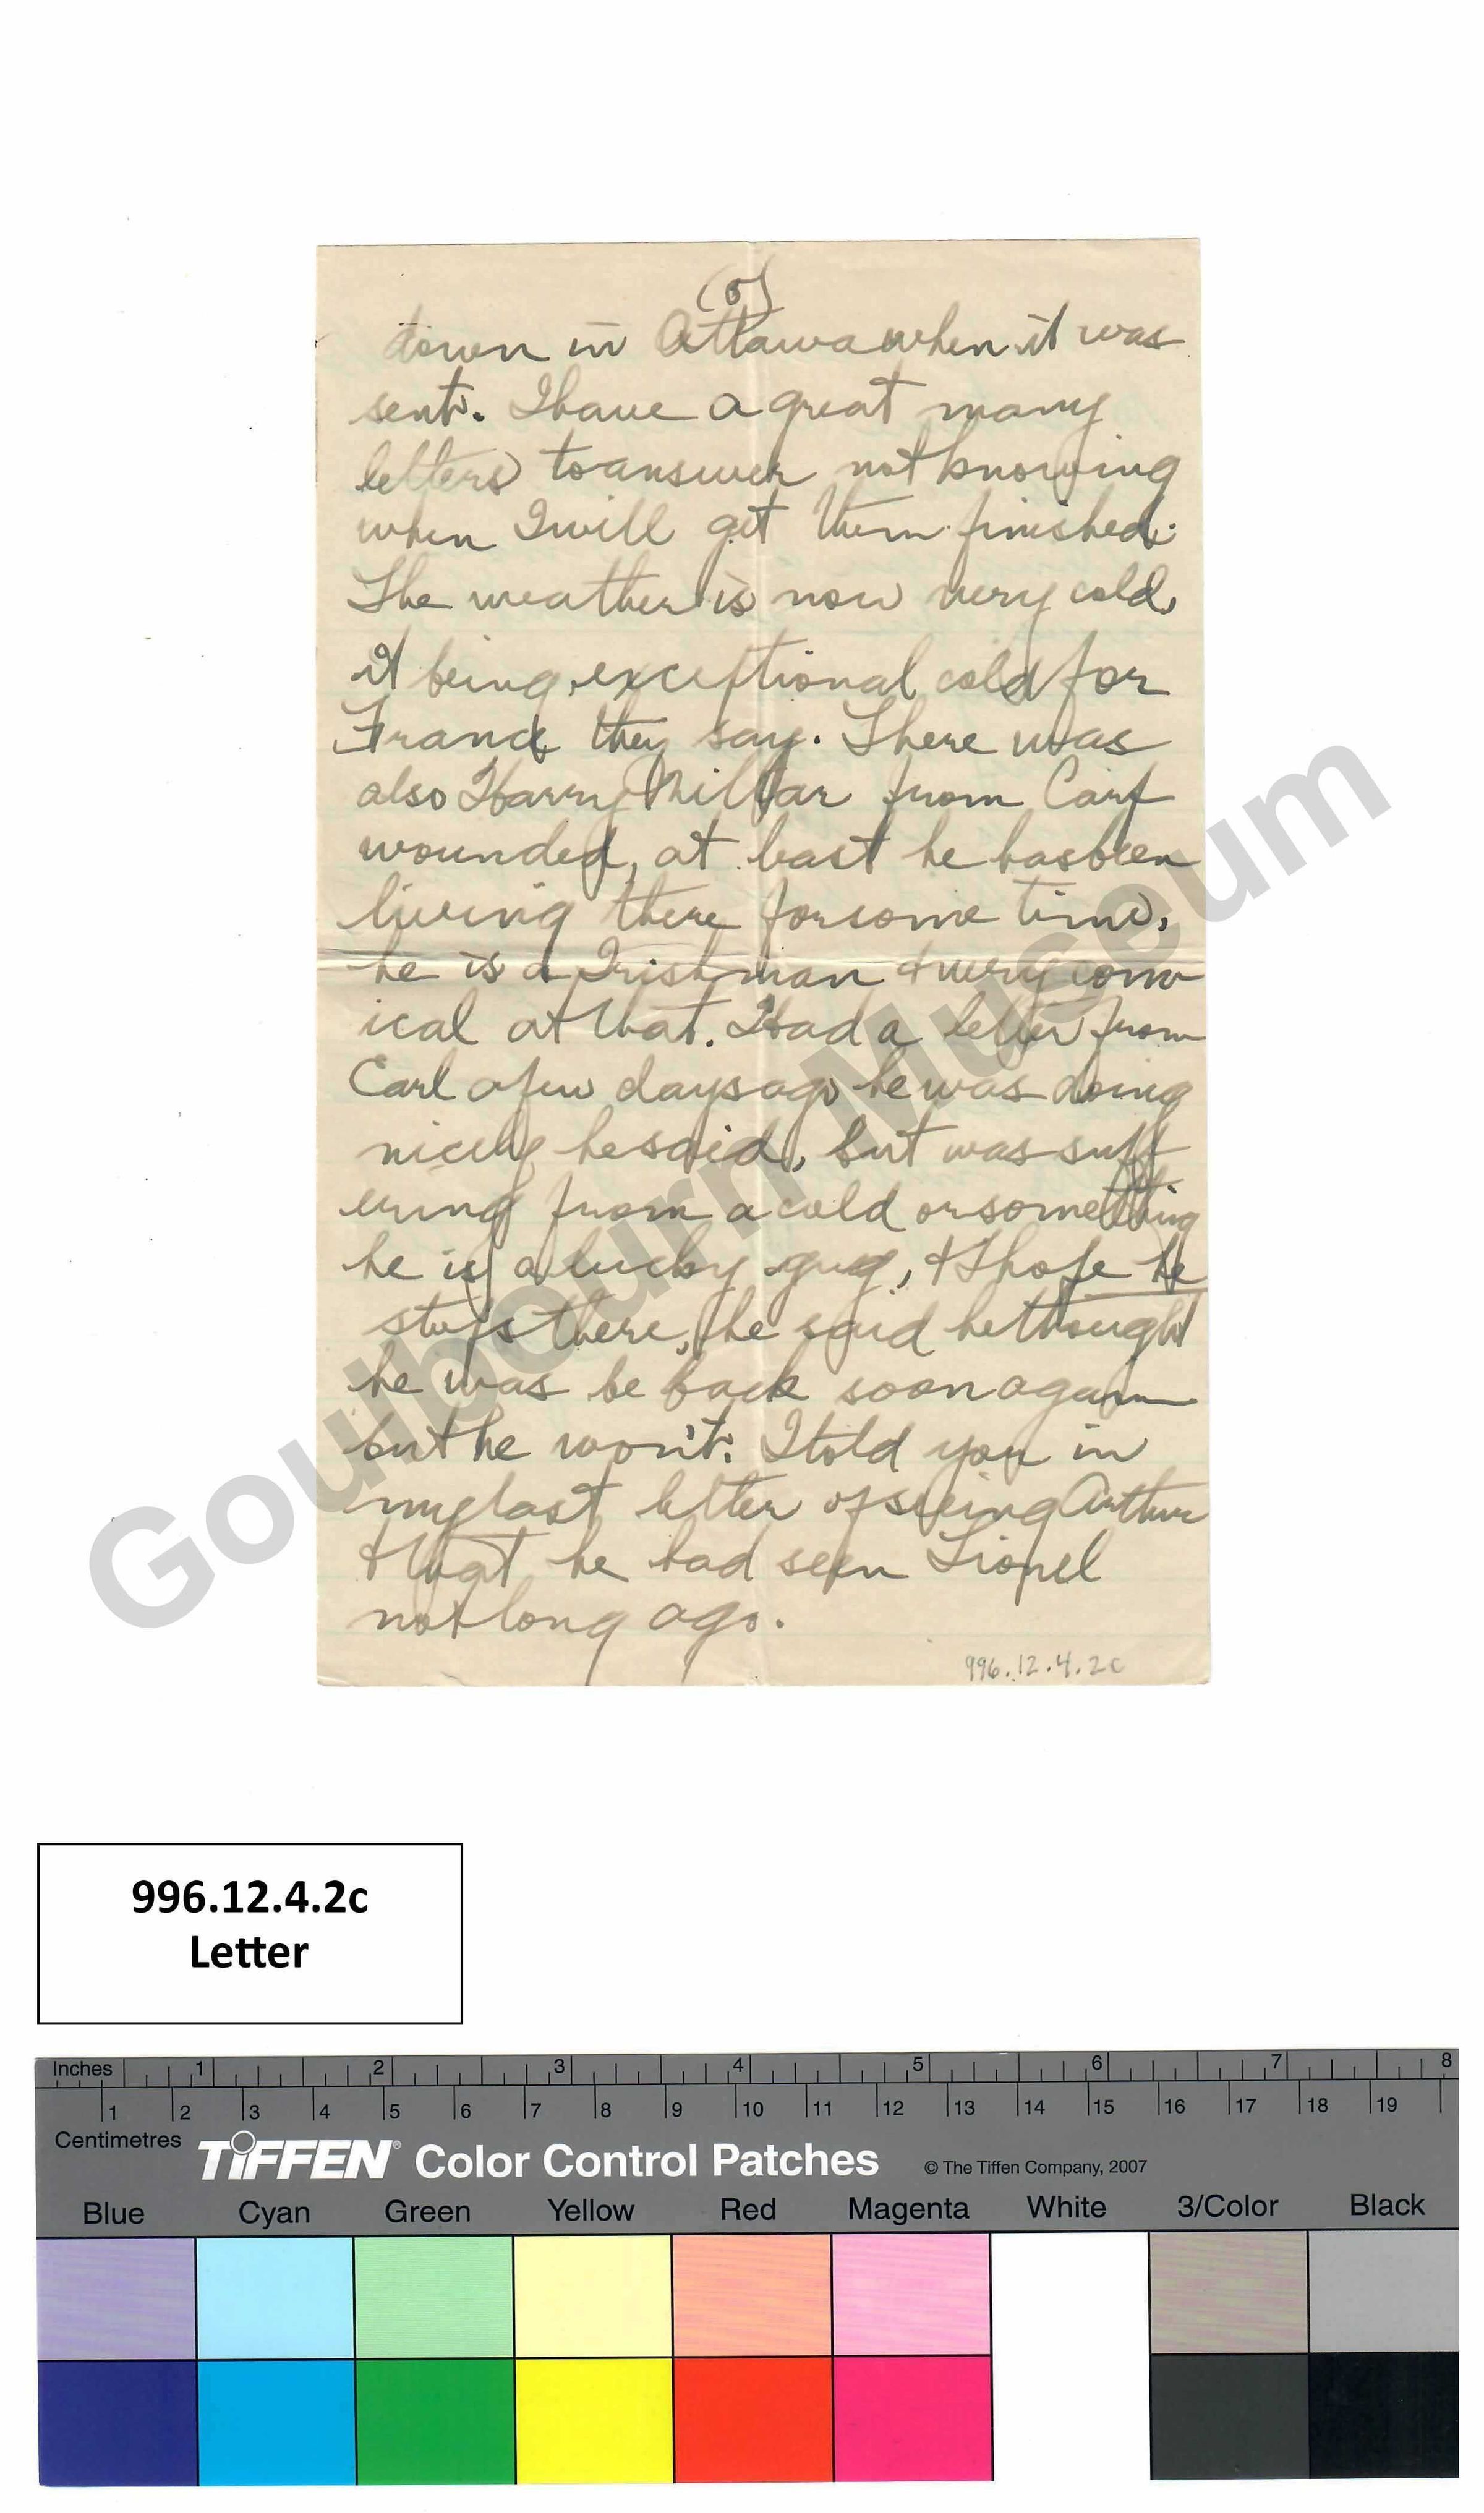 (5)
down in Ottawa when it was
sent. I have a great many
letters to answer not knowing
when I will get them finished.
The weather is now very cold,
it being exceptional cold for
France they say. There was
also Harry Millar from Carp
wounded, at least he has been
living there for some time,
he is a Irishman & very com
ical at that. Had a letter from
Earl a few days ago he was doing
nicely he said, but was suff
ering from a cold or something
he is a lucky guy, & I hope he
stops there, he said he thought
he was be back soon again
but he won't. I told you in
my last letter of seeing Arthur
& that he had seen Lionel
not long ago.
996.12.4.2c
Goulbourn Museum
996.12.4.2c
Letter
Inches 1 2 3 4 5 6 7 8
1 2 3 4 5 6 7 8 9 10 11 12 13 14 15 16 17 18 19
Centimetres
TIFFEN® Color Control Patches © The Tiffen Company, 2007
Blue Cyan Green Yellow Red Magenta White 3/Color Black